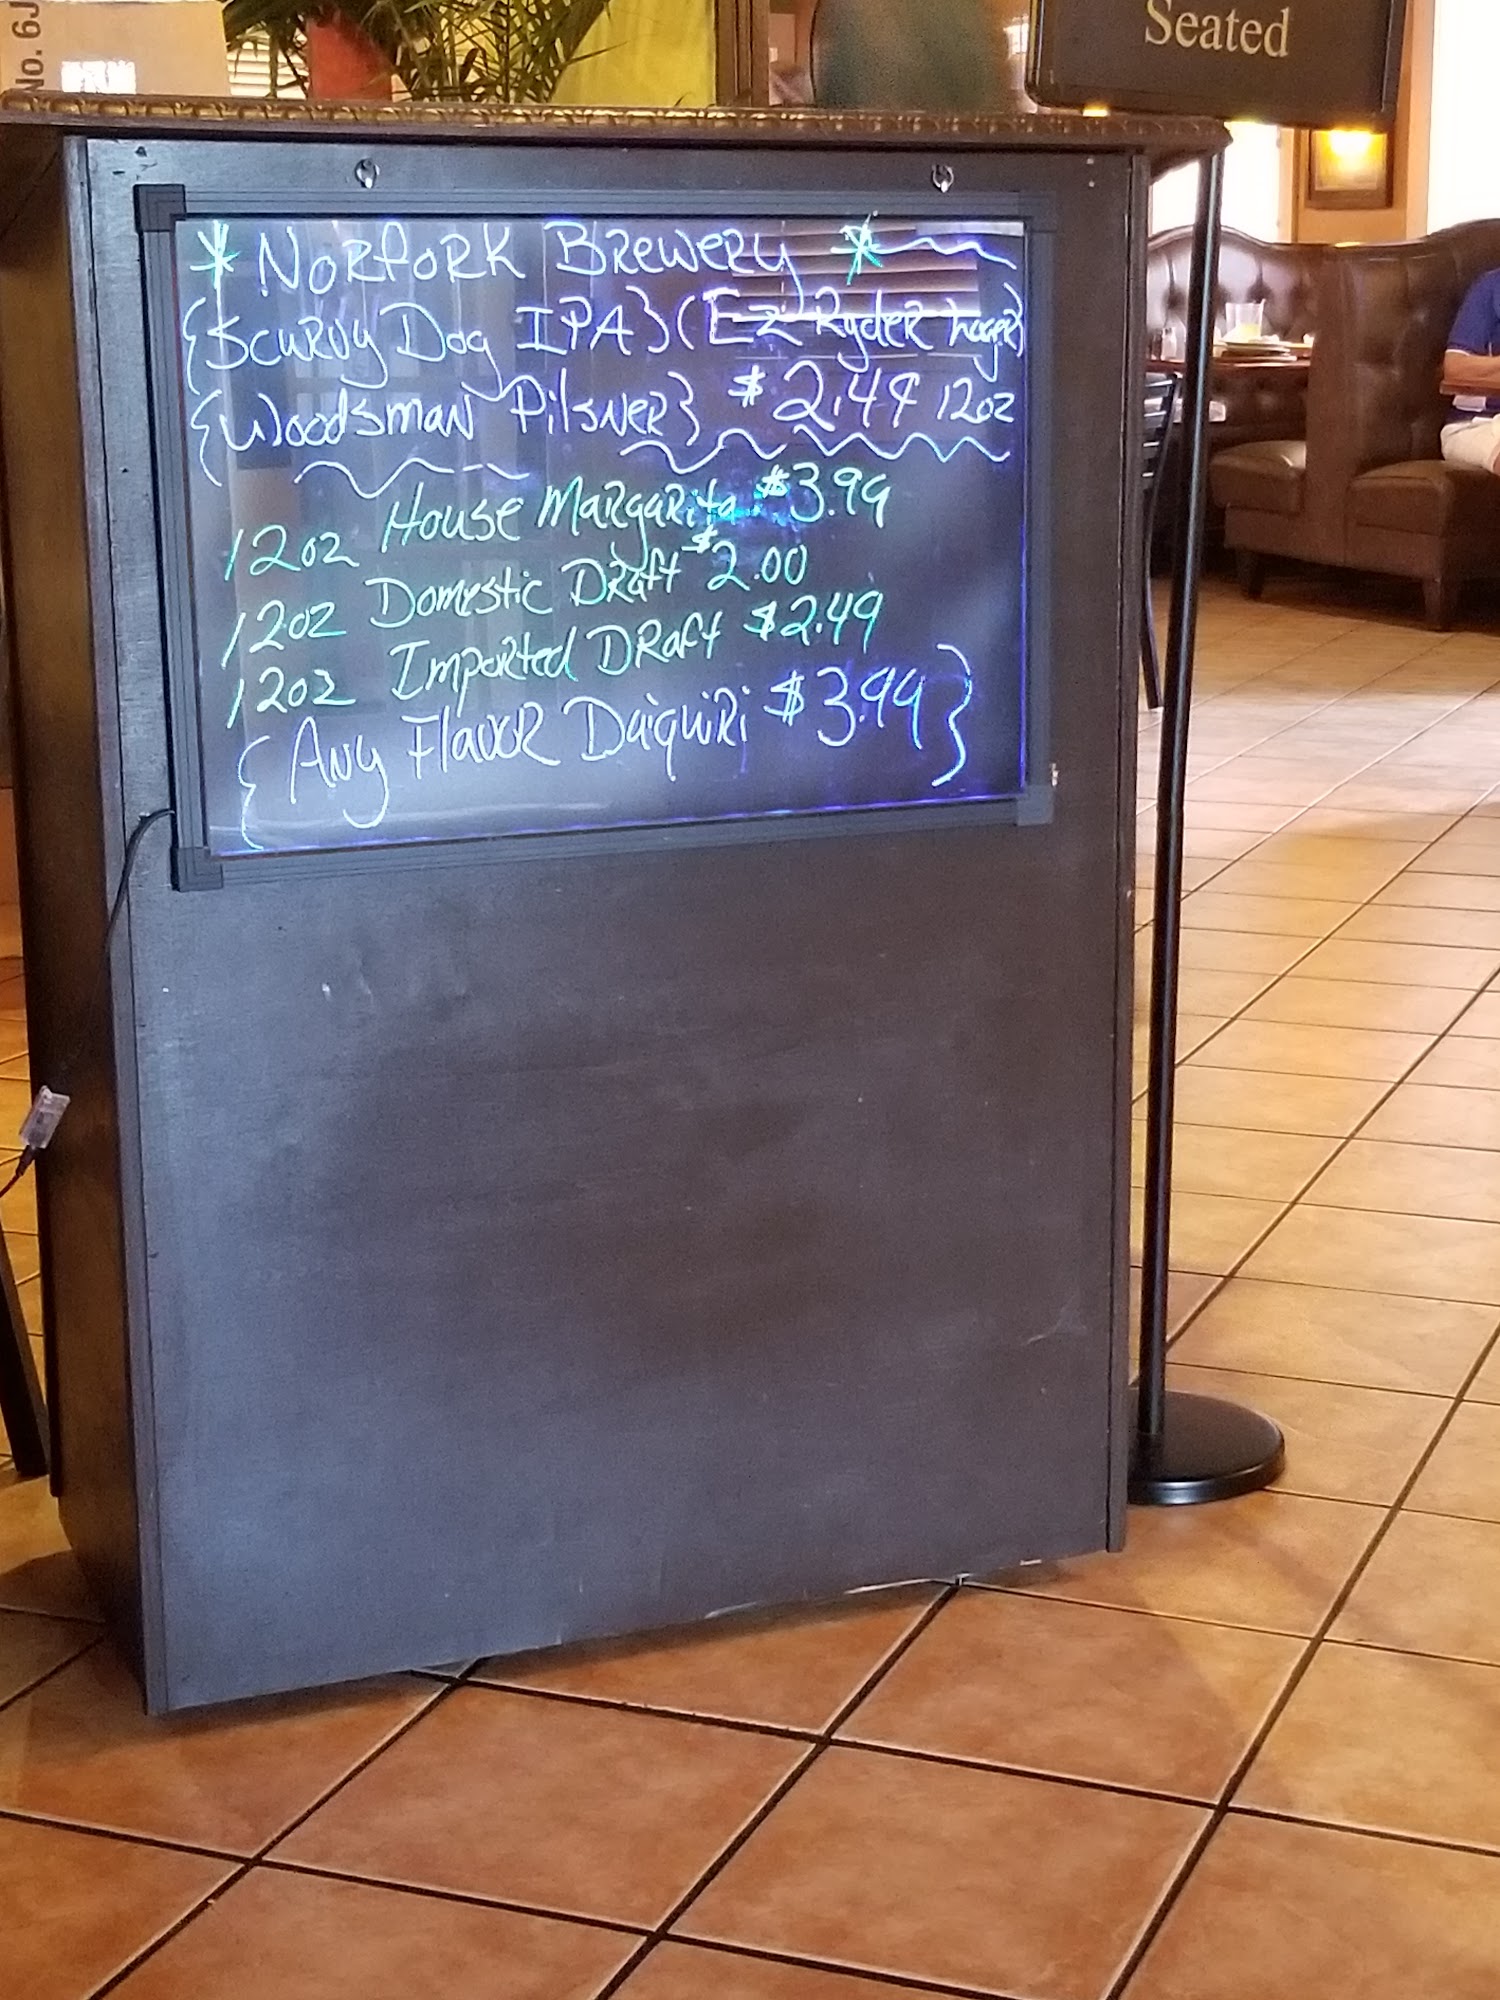 No. 6J
Seated
* NORFORK BREWERY *
{Scurvy Dog IPA} (EZ Ryder Lager)
{Woodsman Pilsner} $2.49 12oz
12oz House Margarita $3.99
12oz Domestic Draft $2.00
12oz Imported Draft $2.49
{Any Flavor Daiquiri $3.99}